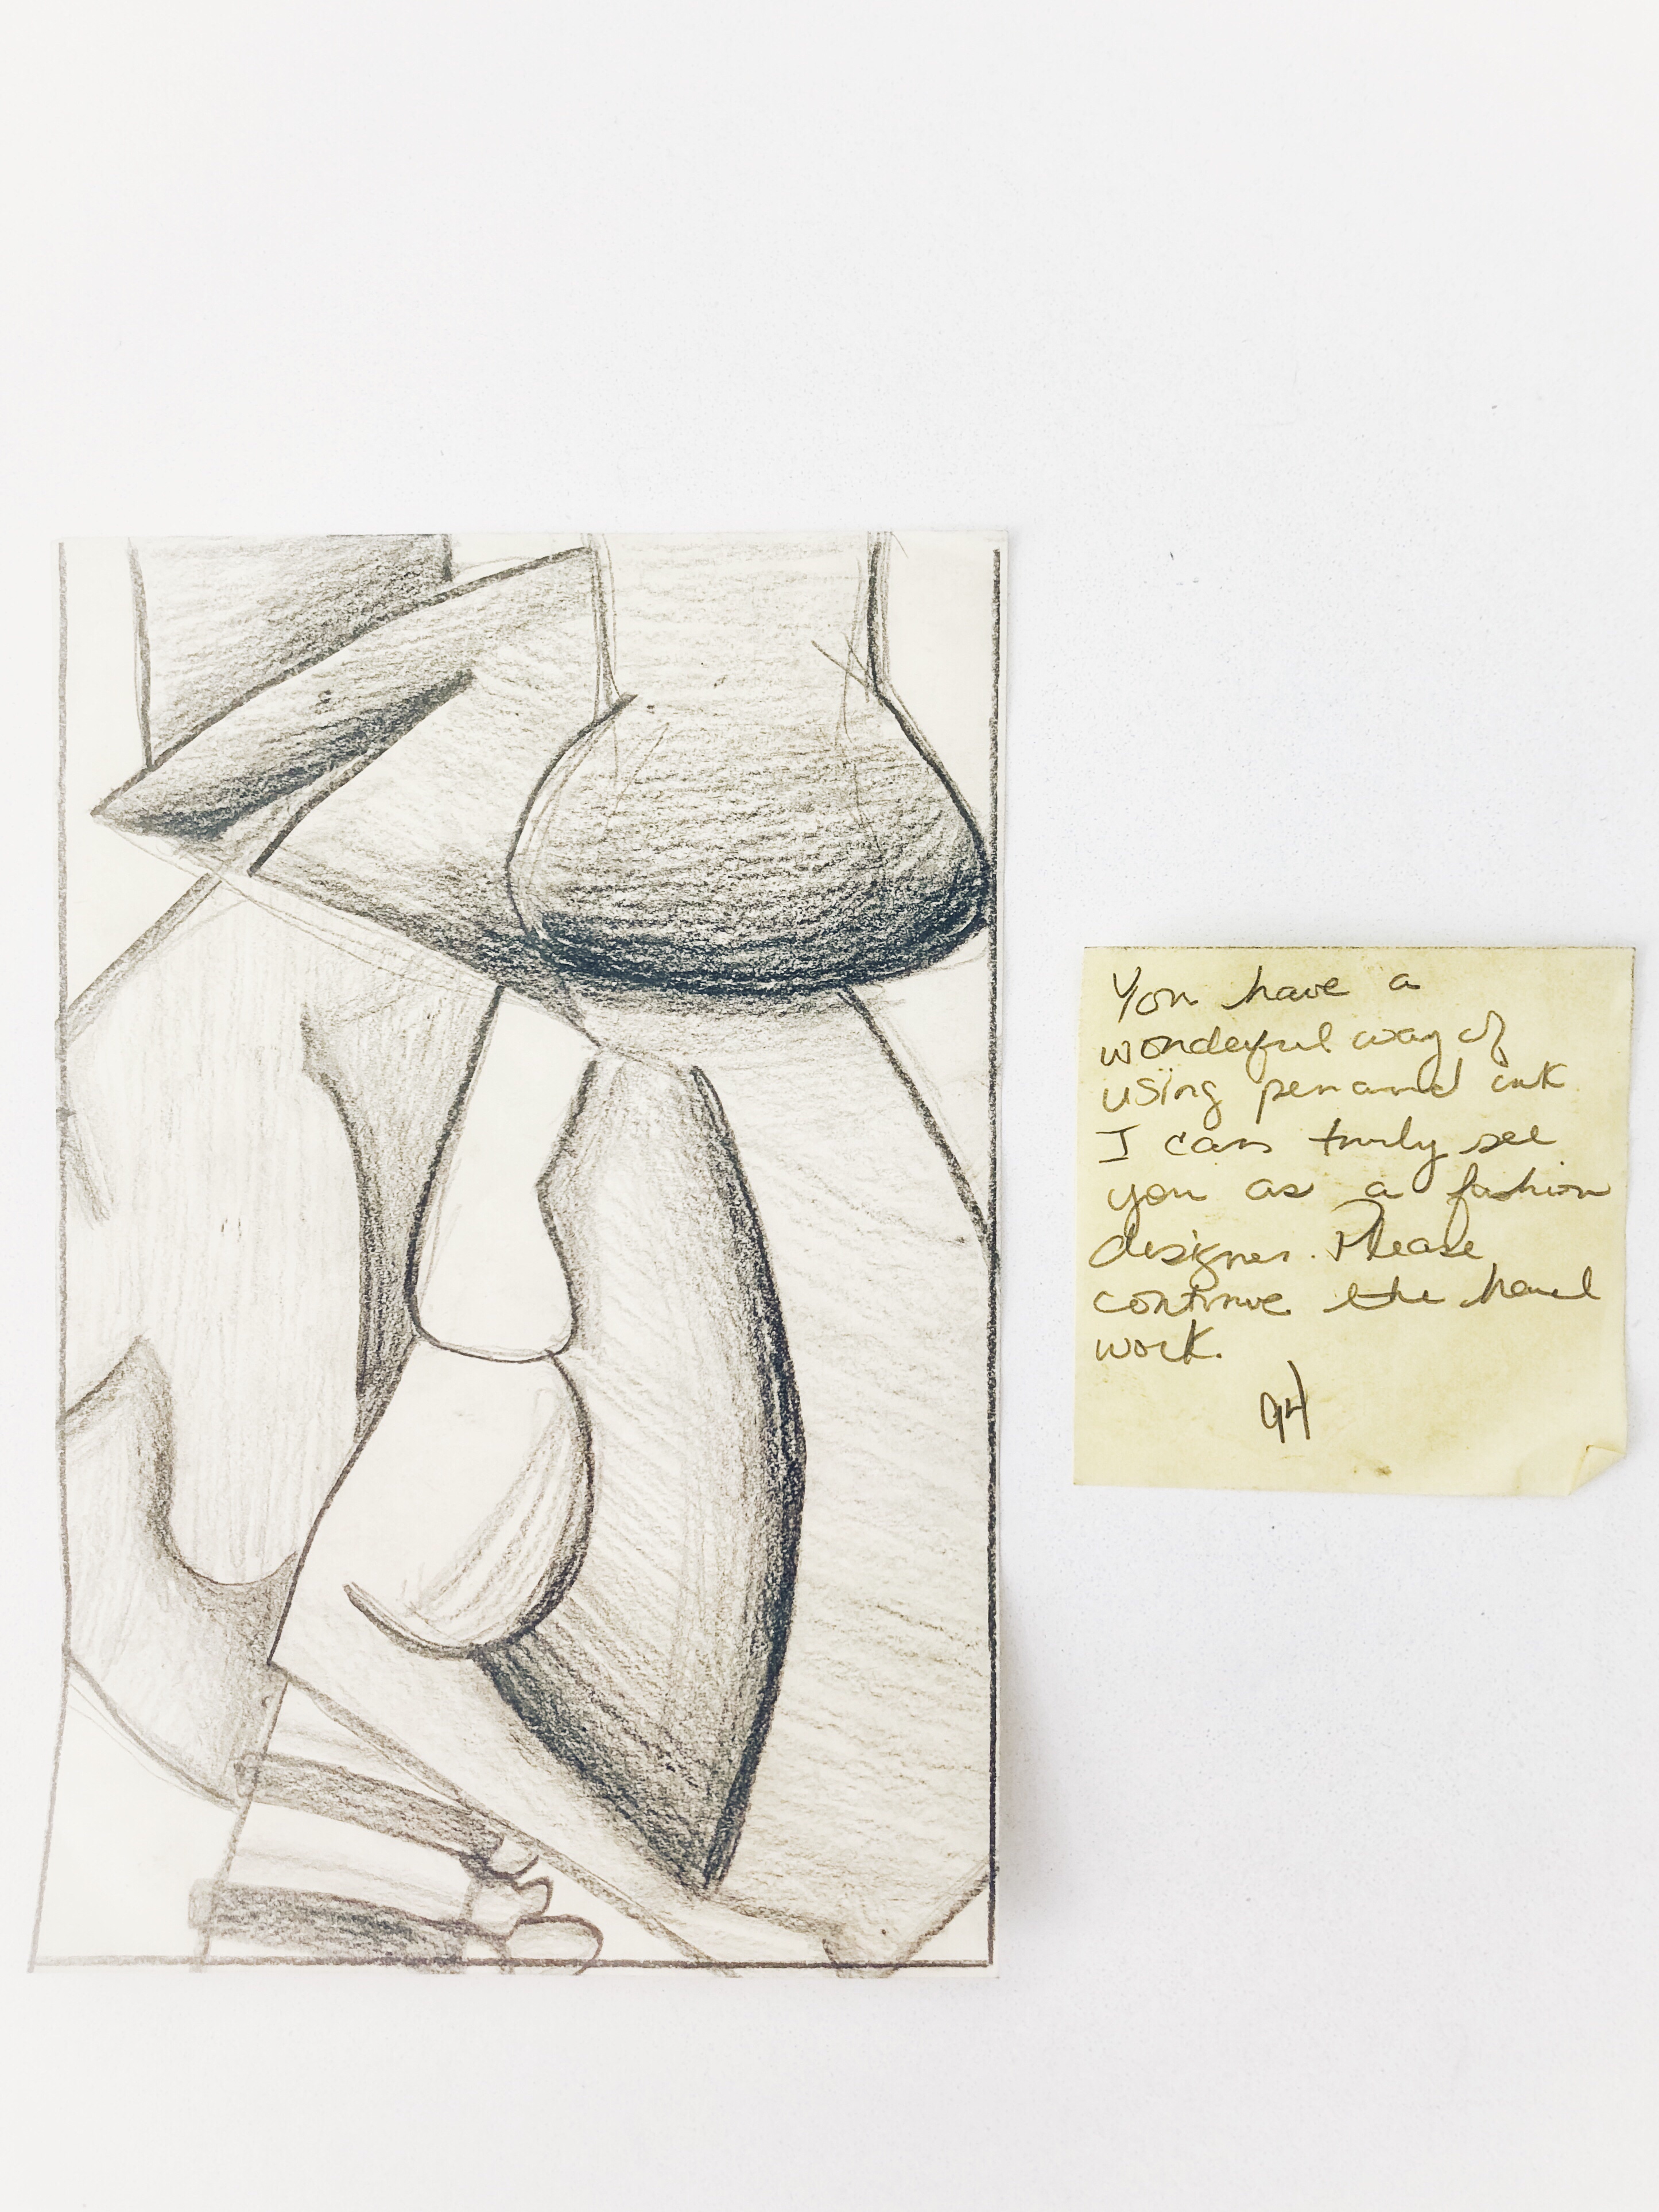 You have a
wonderful way of
using pen and ink
I can truly see
you as a fashion
designer. Please
continue the hard
work.